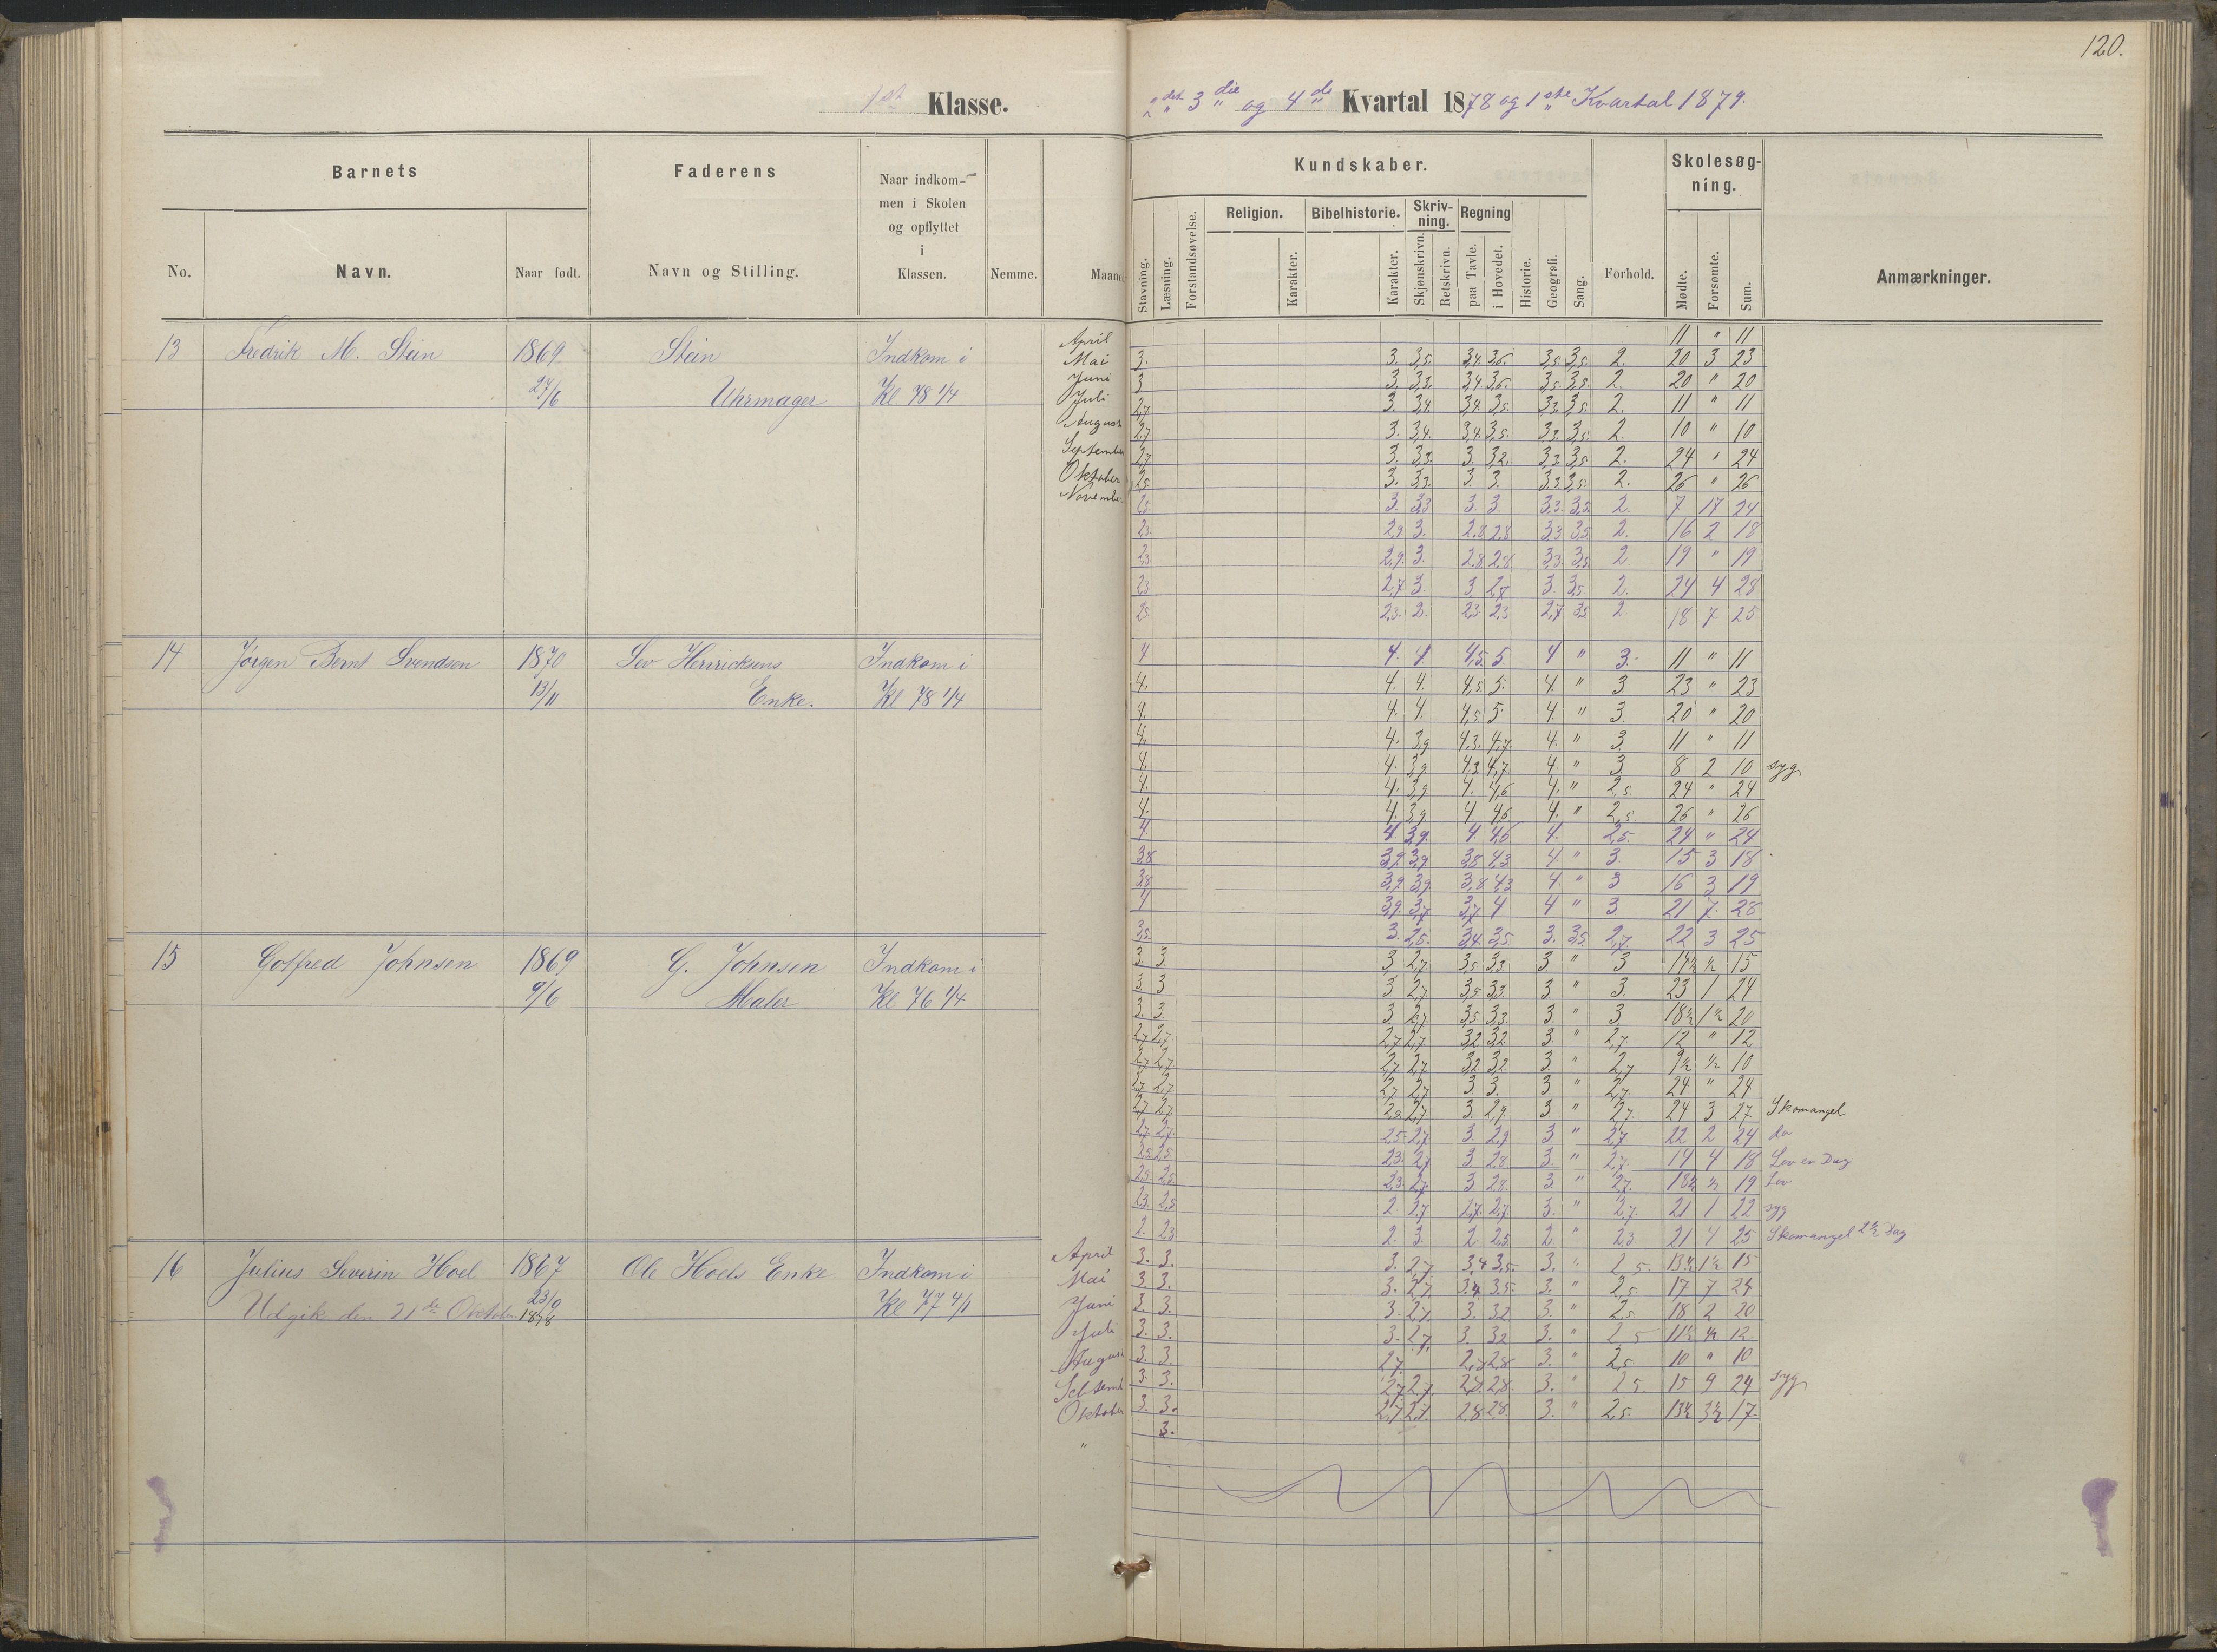 120.
1st Klasse.
det 3die og 4de Kvartal 1878 og 1ste Kvartal 1879.
Barnets
Faderens
Naar indkom-
men i Skolen
og opflyttet
i
Klassen.
Kundskaber.
Skolesøg-
ning.
No.
Navn.
Naar født.
Navn og Stilling.
Nemme.
Maaned
Stavning.
Læsning.
Forstandsøvelse.
Religion.
Karakter.
Bibelhistorie.
Karakter.
Skriv-
ning.
Skjønskrivn.
Retskrivn.
Regning
paa Tavle.
i Hovedet.
Historie.
Geografi.
Sang.
Forhold.
Mødte.
Forsømte.
Sum.
Anmærkninger.
13 Fredrik M. Stein 1869 Stein Indkom i
27/6 Uhrmager Kl 78 1/4
April 11 " 11
Mai 3. 3. 3,5. 3,4. 3,6. 3,5. 3,5. 2. 20 3 23
Juni 3 3. 3,3. 3,4. 3,6. 3,5. 3,5. 2. 20 " 20
Juli 2,7 3. 3,4. 3,4. 3,5. 3,3. 3,5. 2. 11 " 11
August 2,7. 3. 3,4. 3,4. 3,5. 3,3. 3,5. 2. 10 " 10
September 2,7 3. 3,3. 3. 3,2. 3,3. 3,5 2. 24 " 24
Oktober 2,5 3. 3,3. 3. 3. 3,3. 3,5. 2. 26 " 26
November 2,5 3. 3,3 3. 3. 3,3. 3,5. 2. 7 17 24
2,3 2,9 3. 2,8 2,8 3,3 3,5 2. 16 2 18
2,3 2,9. 3. 2,8 2,8 3,3. 3,5. 2 19 " 19
2,3 2,7. 3. 3. 2,7 3. 3,5. 2. 24 4 28
2,5. 2,3. 2. 2,3 2,3 2,7 3,5 2. 18 7 25
14 Jørgen Bernt Svendsen 1870 Sev Henricksens Indkom i
13/11 Enke. Kl 78 1/4
4 4. 4 4,5. 5. 4 " 3. 11 " 11
4. 4. 4. 4,5. 5. 4. " 3 23 " 23
4. 4. 4. 4,5 5. 4. " 3. 20 " 20
4. 4. 3,9 4,3. 4,7. 4. " 3. 11 " 11
4. 4. 3,9 4,3 4,7 4. " 3 8 2 10 syg
4. 4. 3,9 4. 4,6 4. " 2,5. 24 " 24
4. 4. 3,9 4. 4,6 4. " 2,5 26 " 26
4. 4 3,9. 4. 4,6 4. 2,5. 24 " 24
3,8 3,9 3,9 3,8 4,3 4 " 3. 15 3 18
3,8 3,9 3,9. 3,8 4,3 4. " 3 16 3 19
4 3,9. 3,7 3,7 4 4 " 3. 21 7. 28
3,5. 3. 2,5. 3,4. 3,5. 3. 3,5. 2,7. 22 3 25
15 Gotfred Johnsen 1869 G. Johnsen Indkom i
9/6 Maler Kl 76 1/4
3 3. 3 2,7. 3,5 3,3. 3 " 3 14½ ½ 15
3 3 3 2,7 3,5 3,3. 3 " 3. 23 1 24
3. 3. 3 2,7 3,5. 3,3. 3. " 3 18½ 1½ 20
2,7 2,7. 2,7 2,7 3,2 3,2 3. " 2,7 12 " 12
2,7 2,7 2,7 2,7 3,2 3,2 3. " 2,7 9½ ½ 10
2,7 2,7 2,7 2,7 3 3. 3. " 2,7. 24 " 24
2,7 2,7 2,5 2,7 3. 2,9 3 " 2,7. 24 3 27 Skomangel
2,7 2,7 2,5. 2,7 3. 2,9 3. " 2,7 22 2 24 do
2,5 2,5. 2,3. 2,7 3 2,8. 3. " 2,7. 14 4 18 Lov en Dag
2,5. 2,5 2,3. 2,7. 3 2,8. 3 " 2,7. 18½ ½ 19 Lov
2,3 2,3 2 2,7 2,7. 2,7 3. " 2,7. 21 1 22 syg
2. 2,3 2. 3. 2 2,5 2 " 2,3 21 4 25 Skomangel 2½ Dag
16 Julius Severin Hoel 1867 Ole Hoels Enke Indkom i
Udgik den 21de Oktober 1878 Kl 77 4/1
April 3. 3. 3. 2,7 3,4 3,5. 3. " 2,5. 13½ 1½ 15
Mai 3. 3. 3. 2,7. 3,4 3,5. 3. " 2,5 17 7 24
Juni 3. 3. 3. 2,7. 3. 3,2 3. " 2,5 18 2 20
Juli 3. 3. 3. 2,7. 3. 3,2 3. " 2,5 11½ ½ 12
August 3. 3. 2,7. 2,8 2,8 3. " 2,5. 10 " 10
Septemb 3 3. 2,7 2,7. 2,8. 2,8. 3. " 2,5. 15 9 24 syg
Oktober 3. 3. 2,7 2,7. 2,8 2,8. 3. " 2,5. 13½ 3½ 17
" 3.